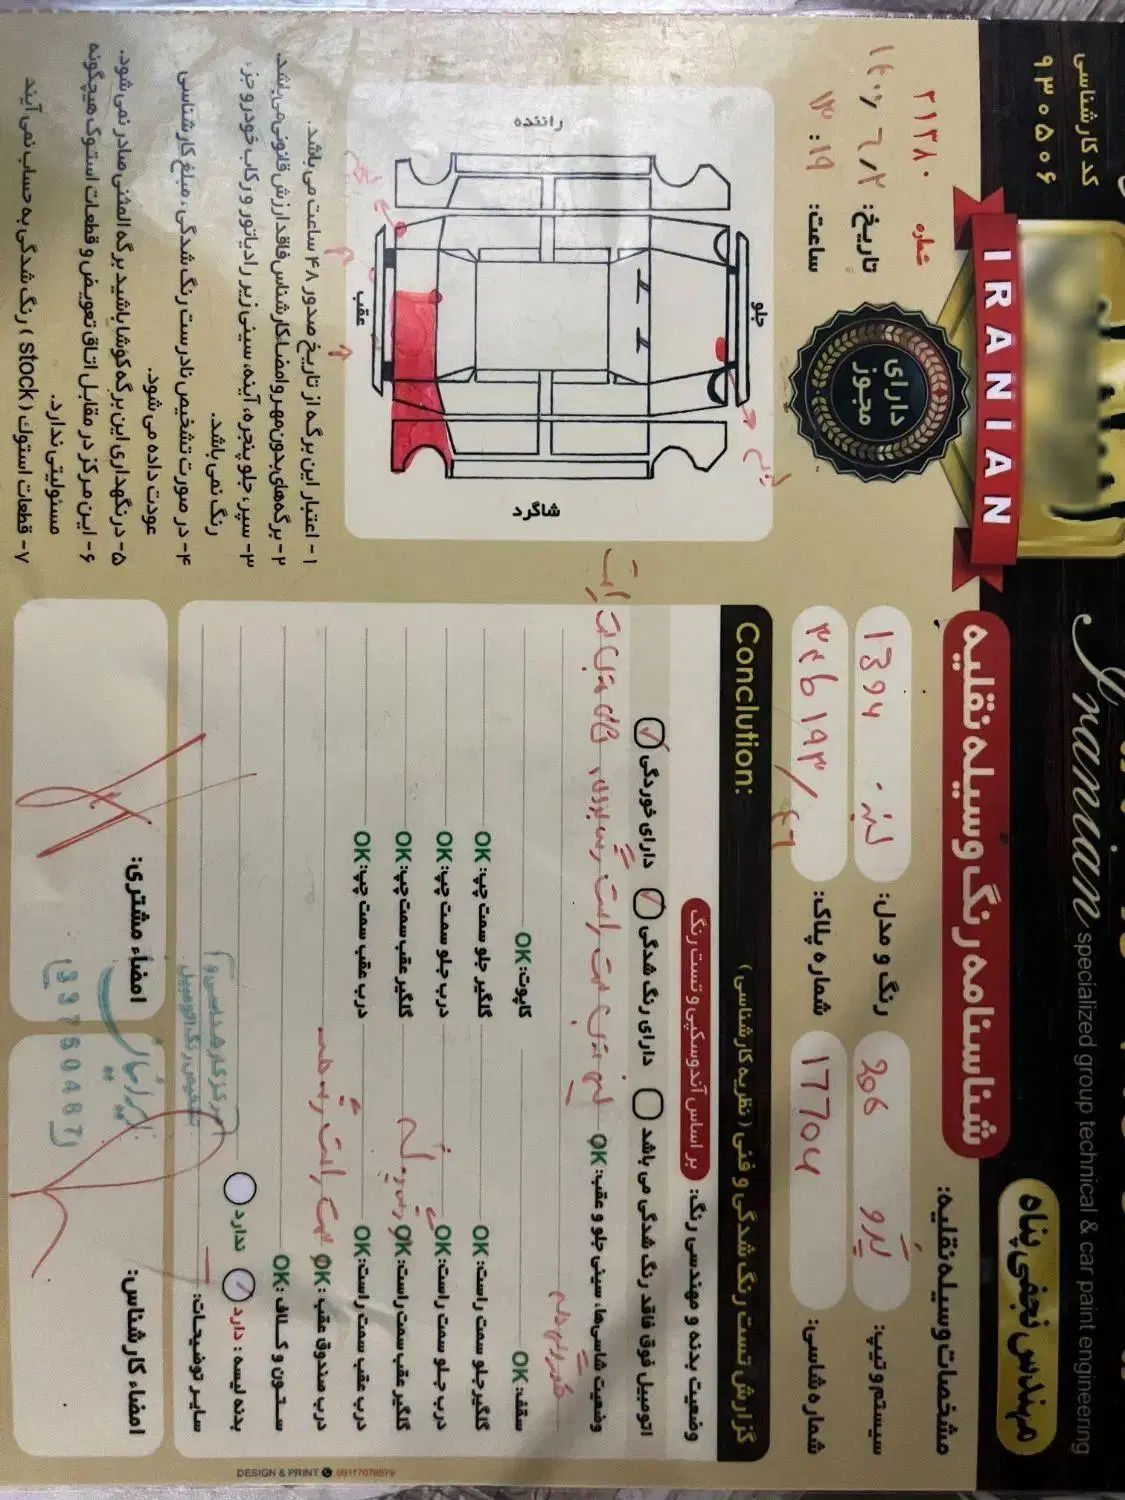 کد کارشناسی
۹۳۰۵۰۶
Iranian specialized group technical & car paint engineering
مهندس نجفی پناه
IRANIAN
شناسنامه رنگ وسیله نقلیه
شماره ۲۱۳۸۰
تاریخ:
ساعت: ۱۹ : ۱۳
دارای مجوز
مشخصات وسیله نقلیه:
سیستم و تیپ: پژو 206
رنگ و مدل: 1394
شماره شاسی: 17704
شماره پلاک:
جلو
راننده
شاگرد
عقب
گزارش تست رنگ شدگی و فنی ( نظریه کارشناسی )
Conclution:
وضعیت بدنه و مهندسی رنگ: بر اساس آندوسکپی و تست رنگ
اتومبیل فوق فاقد رنگ شدگی می باشد
دارای رنگ شدگی
دارای خوردگی
وضعیت شاسی‌ها، سینی جلو و عقب: OK
سقف: OK
کاپوت: OK
گلگیر جلو سمت راست: OK
گلگیر جلو سمت چپ: OK
درب جلو سمت راست: OK
درب جلو سمت چپ: OK
گلگیر عقب سمت راست: OK
گلگیر عقب سمت چپ: OK
درب عقب سمت راست: OK
درب عقب سمت چپ: OK
درب صندوق عقب: OK سمت راست
ستون و کلاف: OK
بدنه لیسه : دارد ندارد
سایر توضیحات:
۱- اعتبار این برگه از تاریخ صدور ۴۸ ساعت می باشد.
۲- برگه‌های بدون مهر و امضا کارشناس فاقد ارزش قانونی می‌باشد.
۳- سپر، جلو پنجره، آینه، سینی زیر رادیاتور و رکاب خودرو جزء
رنگ نمی باشد.
۴- در صورت تشخیص نادرست رنگ شدگی، مبلغ کارشناسی
عودت داده می شود.
۵- در نگهداری این برگه کوشا باشید برگه المثنی صادر نمی شود.
۶- این مرکز در مقابل اتاق تعویض و قطعات استوک هیچگونه
مسئولیتی ندارد.
۷- قطعات استوک (stock) رنگ شدگی به حساب نمی آیند
امضاء کارشناس:
امضاء مشتری:
DESIGN & PRINT 09117078579